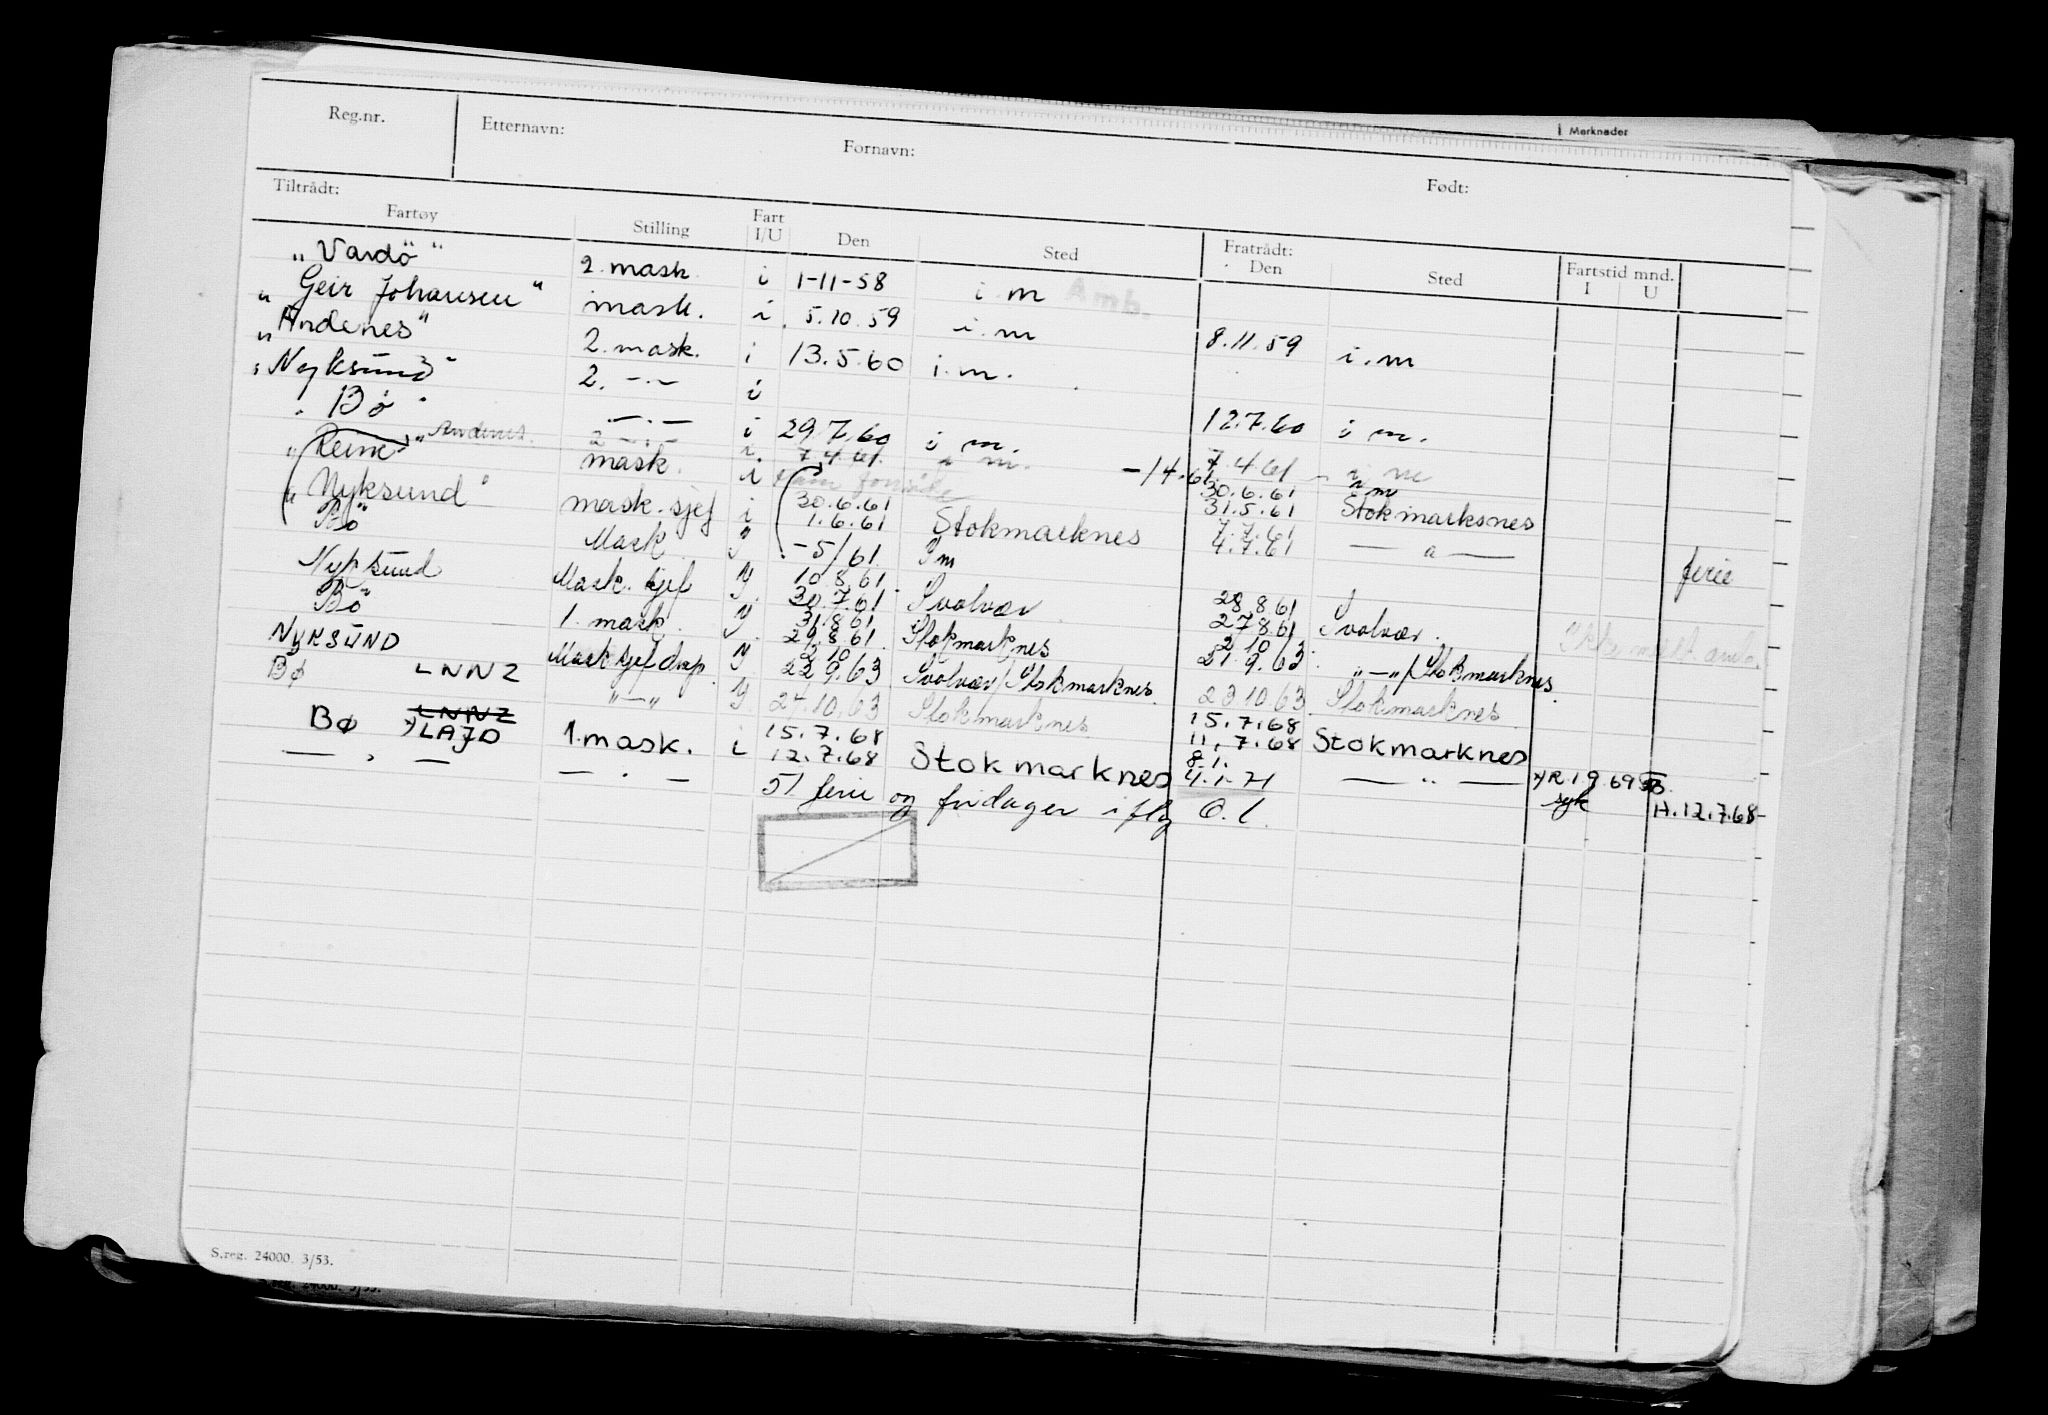 Merknader
Reg.nr. Etternavn: Fornavn: Født:
Tiltrådt: Fratrådt:
Fartøy Stilling Fart I/U Den Sted Den Sted Fartstid mnd. I U
"Vardö" 2. mask i 1-11-58 i m Amb.
"Geir Johansen" mask. i. 5.10.59 i.m 8.11.59 i.m
"Andenes" 2. mask. i 13.5.60 i.m.
"Nyksund" 2. -.- i 12.7.60 i m.
"Bö" -.- i 29.7.60 i m. 7.4.61 i m
"Reine" Andenes. 2 -.- i. 7.4.61. i m. -14.61 30.6.61 i m
mask. i
"Nyksund" mask. sjef i 30.6.61 1.6.61 Stokmarknes 31.5.61 Stokmarksnes
Bö" Mask -5/61 I m 7.7.61 4.7.61 — a — ferie
Nyksund Mask. sjef 10 8.61 30.7.61 Svolvær 28.8.61 27.8.61 Svolvær
Bö" 1. mask. 31.8.61 29.8.61. Stokmarknes 2 10 21.9.63
NYKSUND Mask sjef disp. 2 10 22 9.63 Svolvær/Stokmarknes. "—"/Stokmarknes.
BØ LNNZ "—" 24.10.63 Stokmarknes 23 10 63 Stokmarknes
BØ LNNZ x) LAJD 1. mask. i 15.7.68 12.7.68 Stokmarknes 15.7.68 11.7.68 Stokmarknes
— " — — . — 8.1. 4.1.71 — " — x) R.1 9.69 syk H.12.7.68-
51 ferie og fridager iflg O.l.
S.reg. 24000. 3/53.